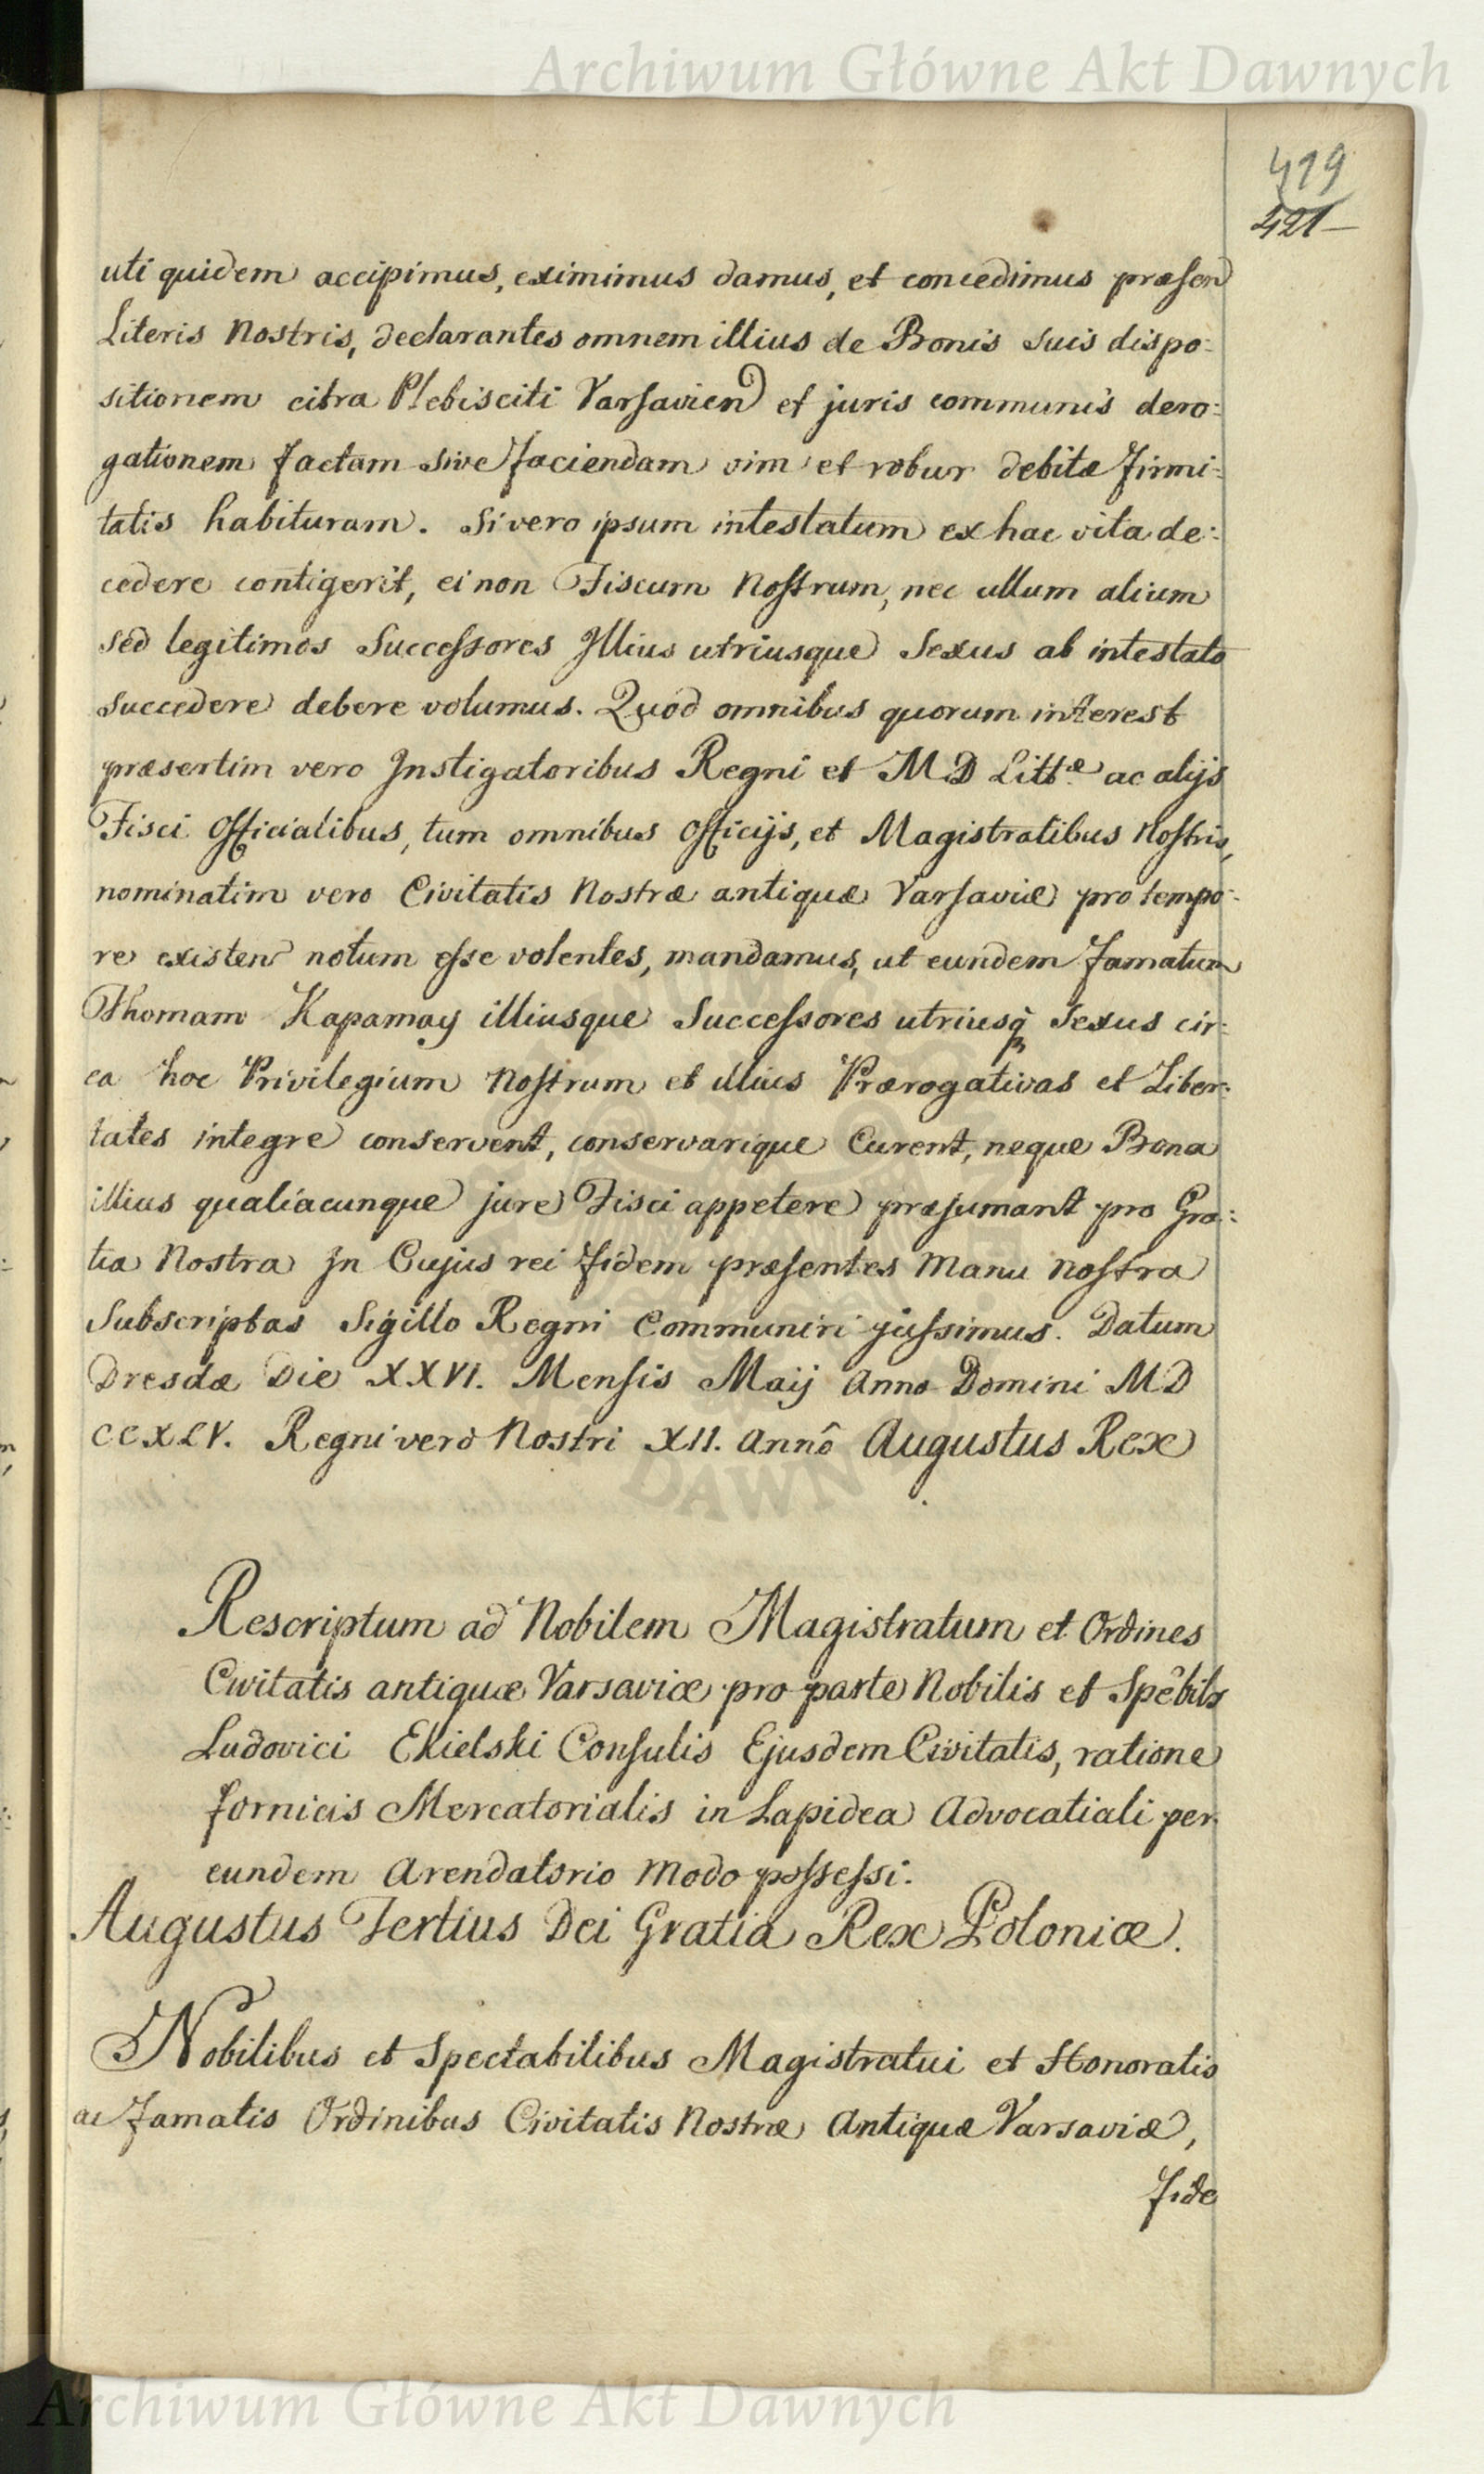 Archiwum Główne Akt Dawnych
419
421
uti quidem accipimus, eximimus damus, et concedimus præsen
Literis Nostris, declarantes omnem illius de Bonis suis dispo:
sitionem citra Plebisciti Varsavien et juris communis dero:
gationem factam sive faciendam vim et robur debitæ firmi:
tatis habituram. Si vero ipsum intestatum ex hac vita de:
cedere contigerit, ei non Fiscum Nostrum, nec ullum alium
sed legitimos Successores Illius utriusque Sexus ab intestato
succedere debere volumus. Quod omnibus quorum interest
præsertim vero Instigatoribus Regni et M D Littæ ac alijs
Fisci Officialibus, tum omnibus Officijs, et Magistratibus Nostris,
nominatim vero Civitatis Nostræ antiquæ Varsaviæ pro tempo:
re existen notum esse volentes, mandamus, ut eundem famatum
Thomam Kapamay illiusque Successores utriusq Sexus cir:
ca hoc Privilegium Nostrum et illius Prærogativas et Liber:
tates integre conservent, conservarique Curent, neque Bona
illius qualiacunque jure Fisci appetere præsumant pro Gra:
tia Nostra In Cujus rei fidem præsentes Manu Nostra
Subscriptas Sigillo Regni Communiri jussimus. Datum
Dresdæ Die XXVI. Mensis Maij Anno Domini MD
CCXLV. Regni vero Nostri XII. Annô Augustus Rex
Rescriptum ad Nobilem Magistratum et Ordines
Civitatis antiquæ Varsaviæ pro parte Nobilis et Spêbils
Ludovici Ekielski Consulis Ejusdem Civitatis, ratione
fornicis Mercatorialis in Lapidea Advocatiali per
eundem Arendatorio Modo possessi.
Augustus Tertius Dei Gratia Rex Poloniæ.
Nobilibus et Spectabilibus Magistratui et Honoratis
ac famatis Ordinibus Civitatis Nostræ Antiquæ Varsaviæ,
fide
Archiwum Główne Akt Dawnych